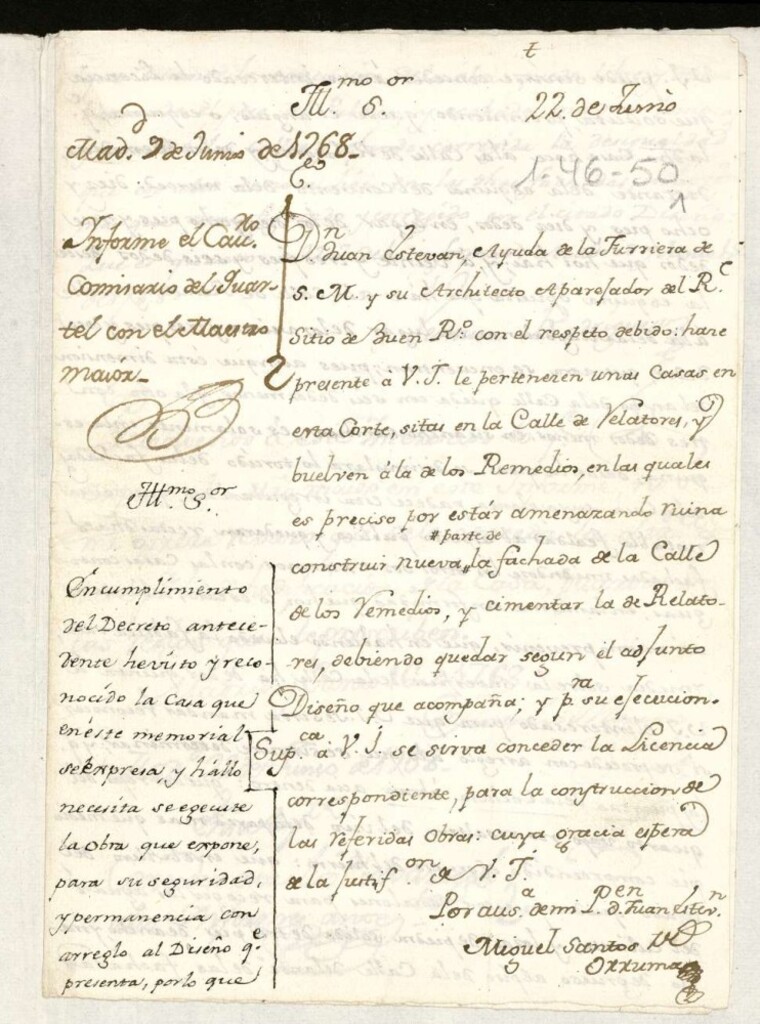 t
Ill.mo S.or
22. de Junio
Mad.d 9 de Junio de 1768.
1-46-50
1
Informe el Cav.ro
Comisario del Quar-
tel con el Maestro
maior
D.n Juan Estevan, Ayuda de la Furriera de
S. M. y su Architecto Aparejador del R.l
Sitio de Buen R.o con el respeto debido: hace
presente â V. I. le pertenecen unas Casas en
esta Corte, sitas en la Calle de Relatores, y
buelven â la de los Remedios, en las quales
es preciso por estár amenazando ruina
# parte de
construir nueva # la fachada de la Calle
de los Remedios, y cimentar la de Relato-
res, debiendo quedar segun el adjunto
Diseño que acompaña; y p.ra su ejecucion.
Sup.ca â V. I. se sirva conceder la Licencia
correspondiente, para la construccion de
las referidas obras: cuya gracia espera
de la justif.on de V. I.
Por aus.a de mi P.e D.n Juan Estev.n
Miguel Santos
Ill.mo S.or
En cumplimiento
del Decreto antece-
dente he visto y reco-
nocido la Casa que
en éste memorial
se expresa, y hállo
necesita se egecute
la obra que expone,
para su seguridad,
y permanencia con
arreglo al Diseño q.e
presenta, por lo que